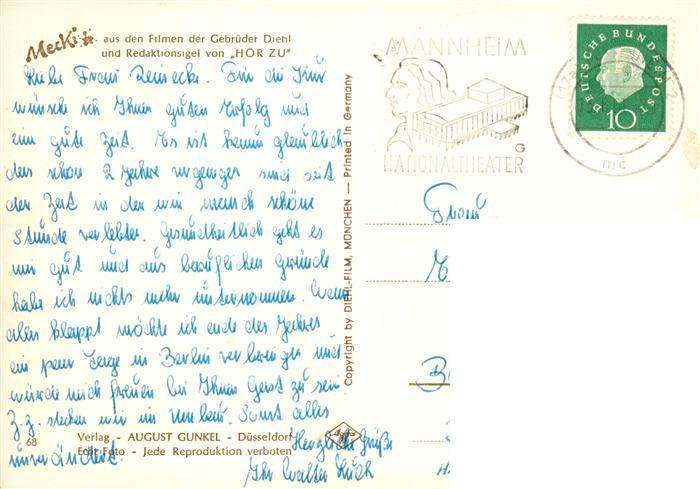 Mecki
aus den Filmen der Gebrüder Diehl
und Redaktionsigel von „HÖR ZU"
Liebe Frau Reinecke. Für die Kur
wünsche ich Ihnen guten Erfolg und
eine gute Zeit. Es ist kaum glaublich
das schon 2 Jahre vergangen sind seit
der Zeit in der wir manch schöne
Stunde verlebten. Gesundheitlich geht es
mir gut und aus beruflichen Gründe
habe ich nichts mehr unternommen. Wenn
alles klappt möchte ich ende des Jahres
ein paar Tage in Berlin verbringen und
würde mich freuen bei Ihnen Gast zu sein
Z.Z. stecken wir im Umbau. Sonst alles
unverändert.
Herzliche Grüße
Ihr Walter
68
Verlag - AUGUST GUNKEL - Düsseldorf
Echt Foto - Jede Reproduktion verboten
Copyright by DIEHL-FILM, MÜNCHEN — Printed in Germany
Agfa
MANNHEIM
G
NATIONALTHEATER
mc
DEUTSCHE BUNDESPOST
10
Frau